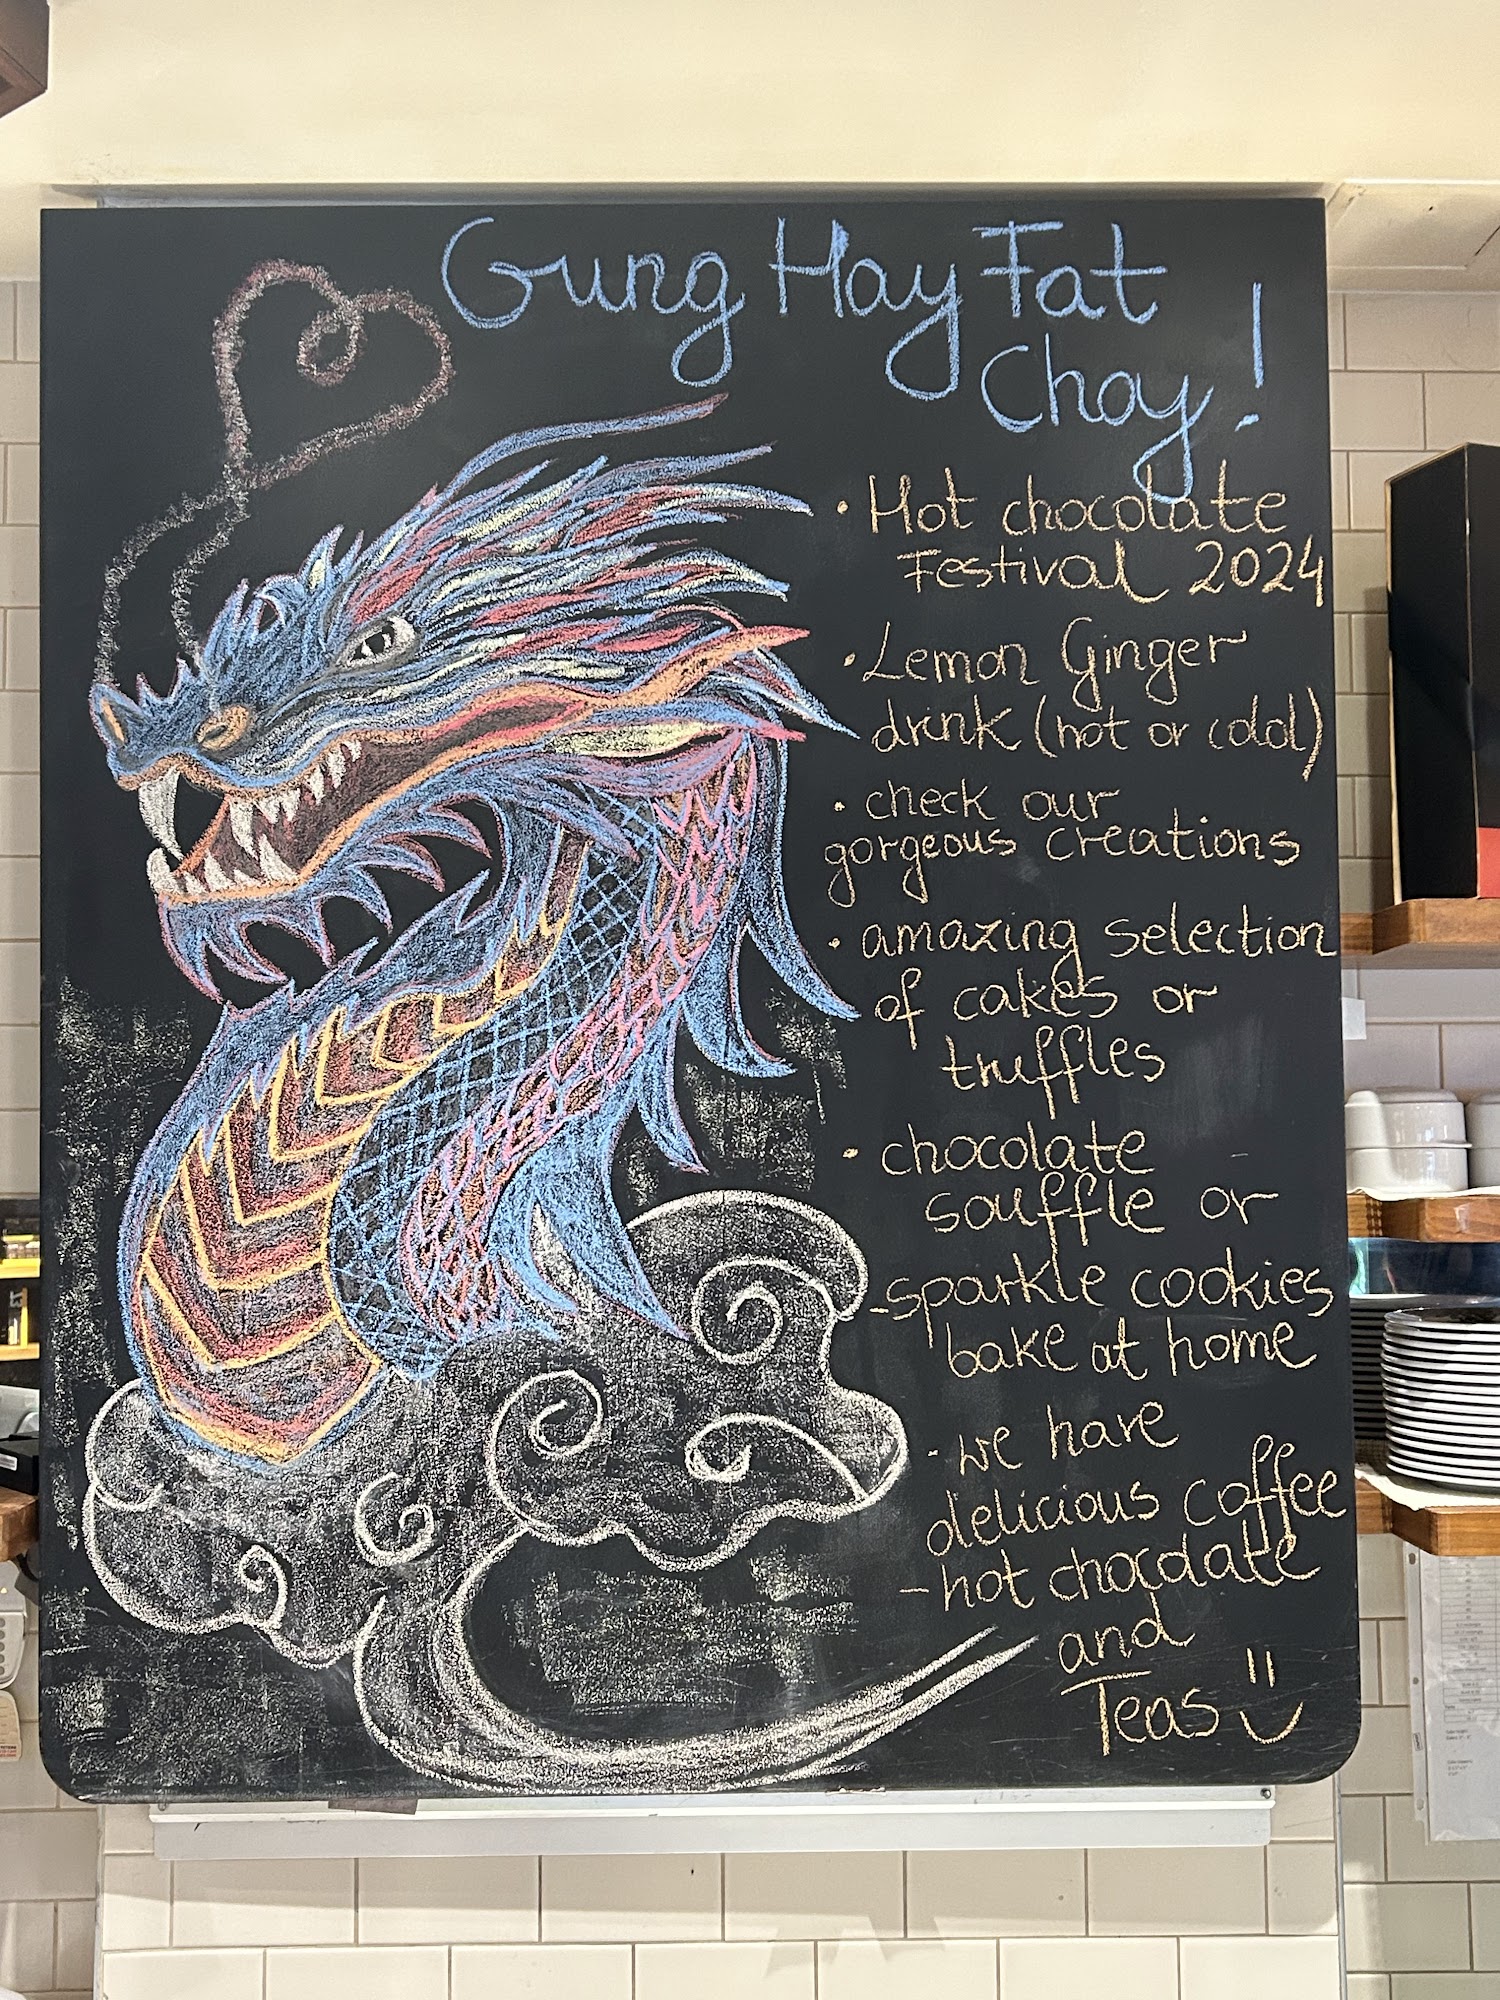 Gung Hay Fat
Choy!
· Hot chocolate
Festival 2024
· Lemon Ginger
drink (hot or cold)
· check our
gorgeous creations
· amazing selection
of cakes or
truffles
· chocolate
souffle or
-sparkle cookies
bake at home
· we have
delicious coffee
-hot chocolate
and
Teas